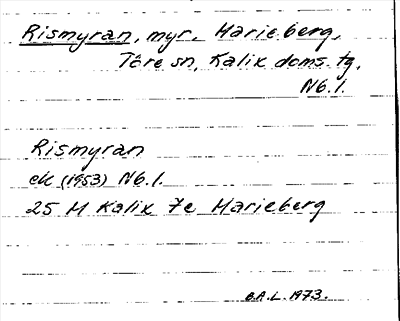 Rismyran, myr. Marieberg,
Töre sn, Kalix doms. tg.
Nb. l.
Rismyran
ek (1953) Nb. l.
25 M Kalix 7e Marieberg
B.A.L. 1973.